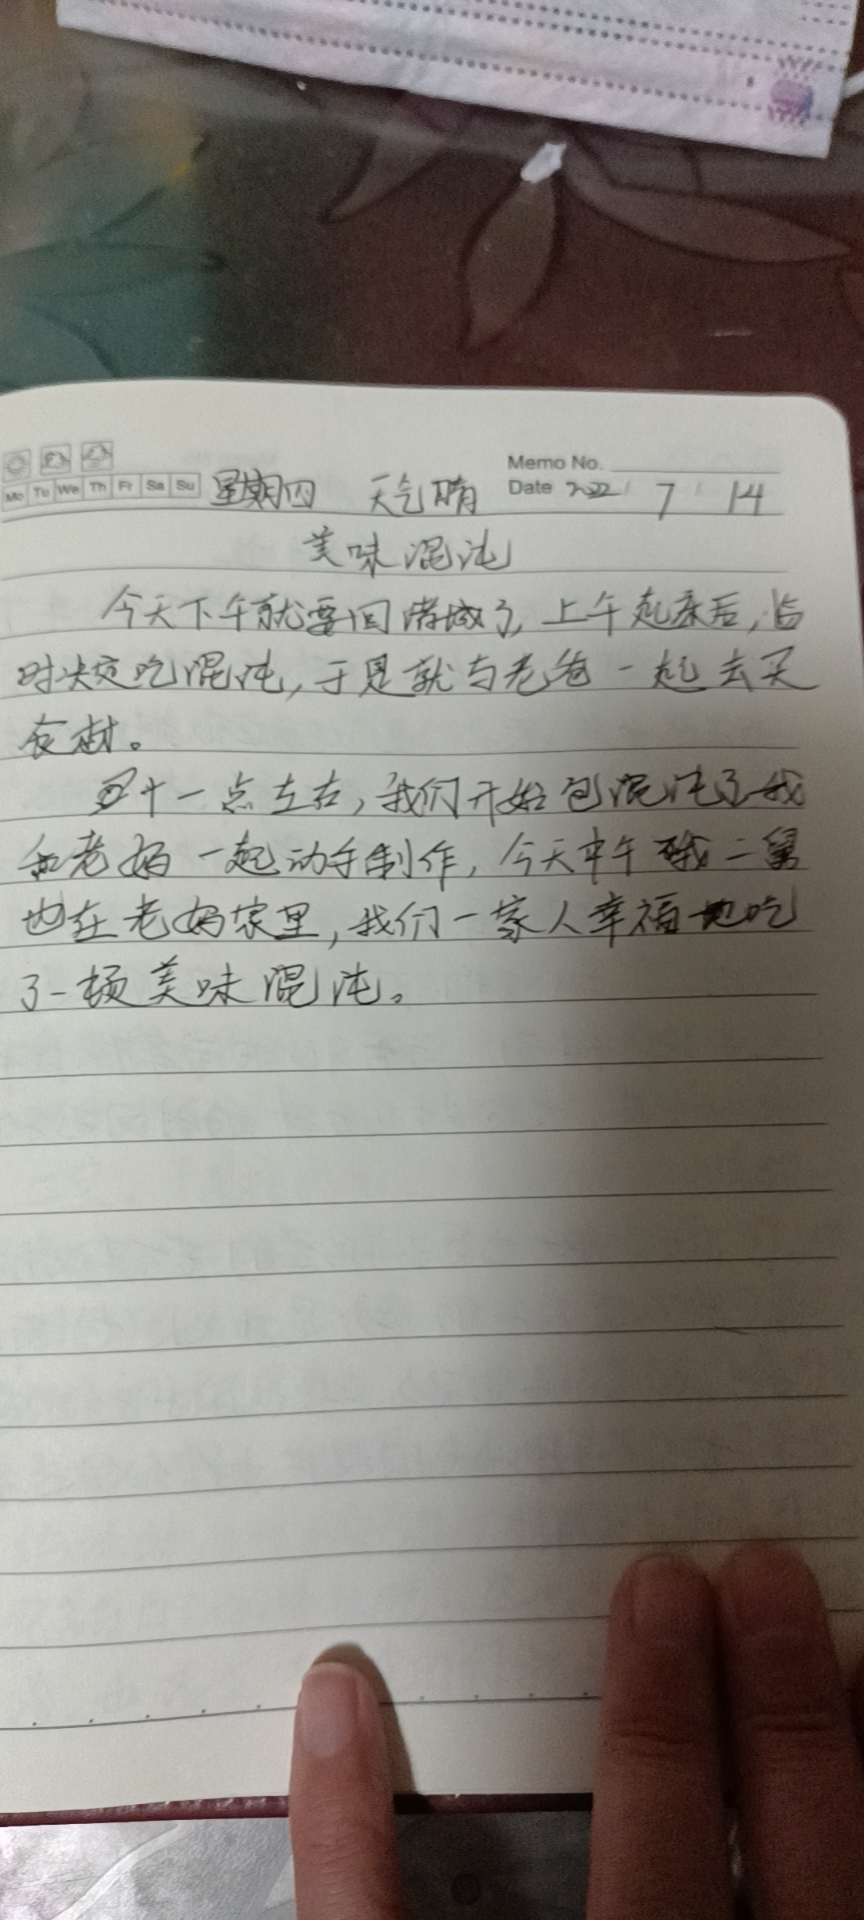 Memo No.
Mo Tu We Th Fr Sa Su 星期四 天气晴 Date 2022 7 14
美味混沌
今天下午就要回城了,上午起床后,临
时决定吃混沌,于是就与老爸一起去买
食材。
十一点左右,我们开始包混沌了我
和老妈一起动手制作,今天中午我二舅
也在老妈家里,我们一家人幸福地吃
了一顿美味混沌。